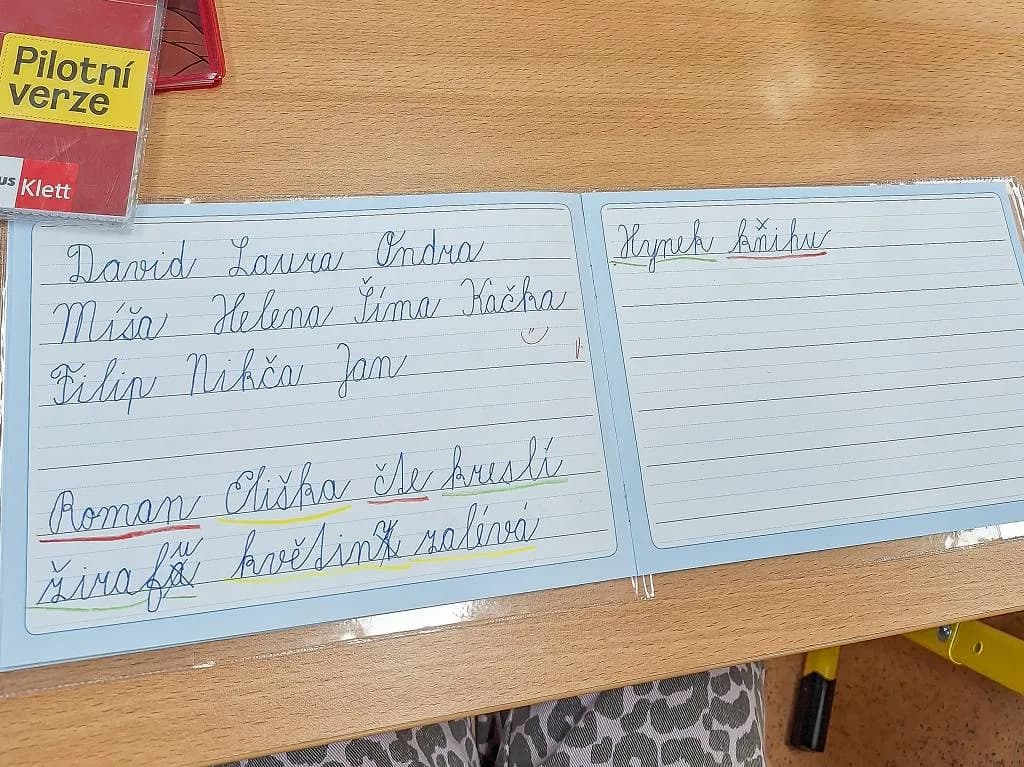 Pilotní
verze
us Klett
David Laura Ondra
Míša Helena Šíma Kačka
Filip Nikča Jan
Roman Eliška čte kreslí
žirafu květiny zalévá
Hynek kňihu